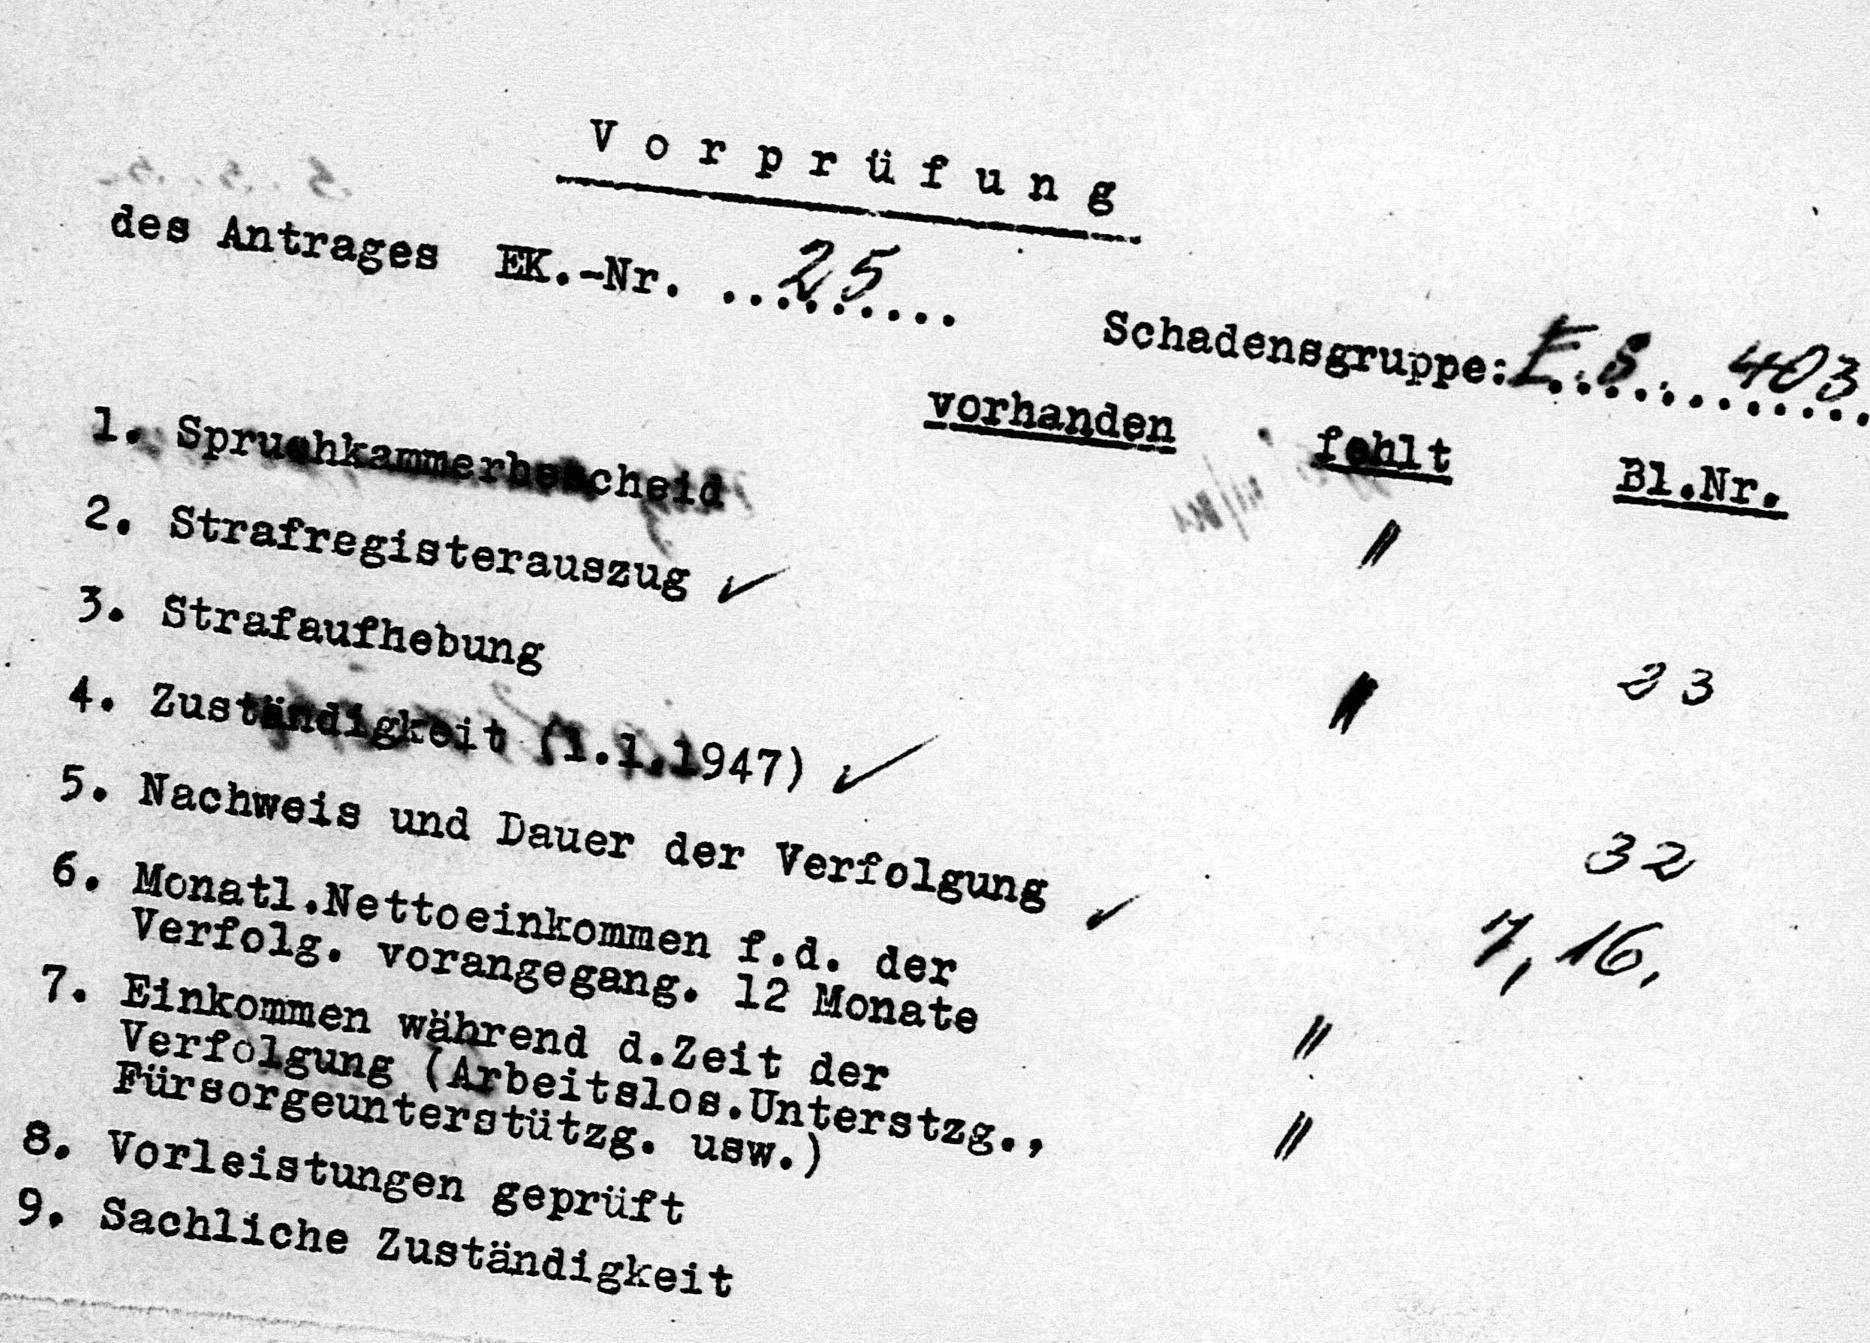 Vorprüfung
des Antrages EK.-Nr. ..25.......
Schadensgruppe: E.S. 403
vorhanden fehlt Bl.Nr.
1. Spruchkammerbescheid "
2. Strafregisterauszug ✓ 23
3. Strafaufhebung "
4. Zuständigkeit (1.1.1947) ✓ 32
5. Nachweis und Dauer der Verfolgung ✓ 7, 16,
6. Monatl.Nettoeinkommen f.d. der
Verfolg. vorangegang. 12 Monate "
7. Einkommen während d.Zeit der
Verfolgung (Arbeitslos.Unterstzg.,
Fürsorgeunterstützg. usw.) "
8. Vorleistungen geprüft
9. Sachliche Zuständigkeit